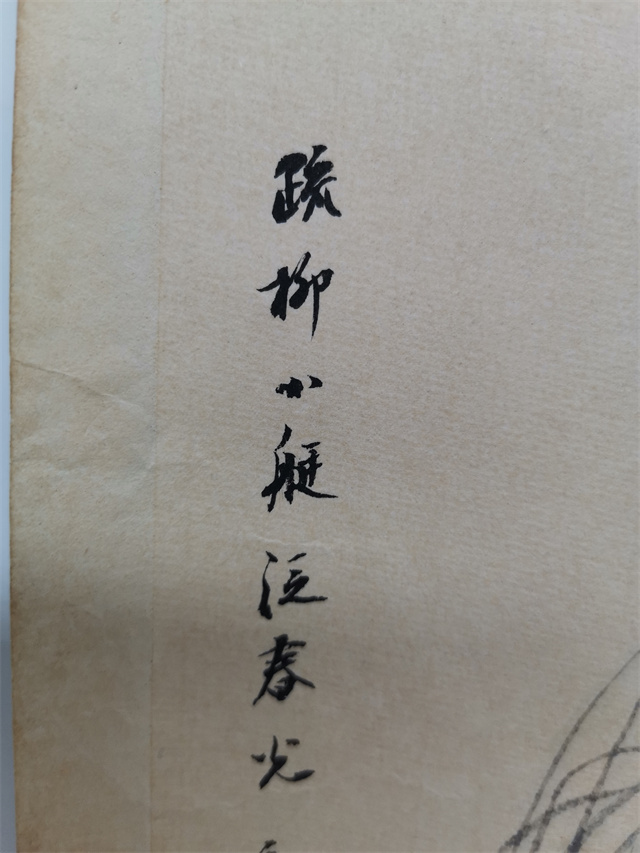 疏柳小艇泛春光